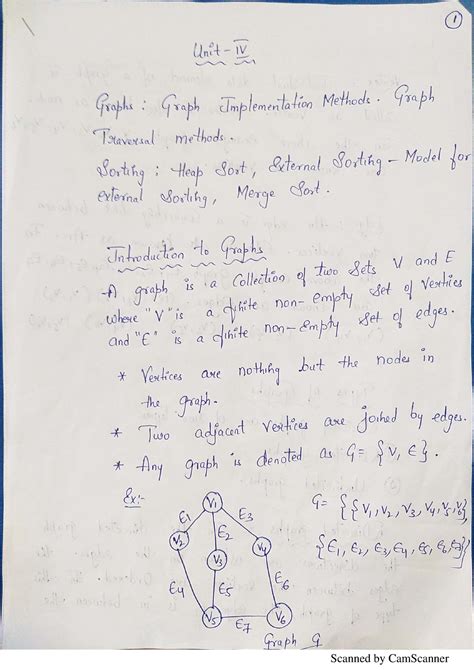 1
Unit - IV
Graphs : Graph Implementation Methods. Graph
Traversal methods.
Sorting : Heap Sort, External Sorting - Model for
external Sorting, Merge Sort.
Introduction to Graphs
A graph is a Collection of two Sets V and E
where "V" is a finite non-empty set of vertices
and "E" is a finite non-empty set of edges.
* Vertices are nothing but the nodes in
the graph.
* Two adjacent vertices are joined by edges.
* Any graph is denoted as G= {V, E}.
Ex:-
G= {{V1, V2, V3, V4, V5, V6}
{E1, E2, E3, E4, E5, E6, E7}}
V1
E1 E2 E3
V2 V3 V4
E4 E5 E6
V5 E7 V6
Graph G
Scanned by CamScanner